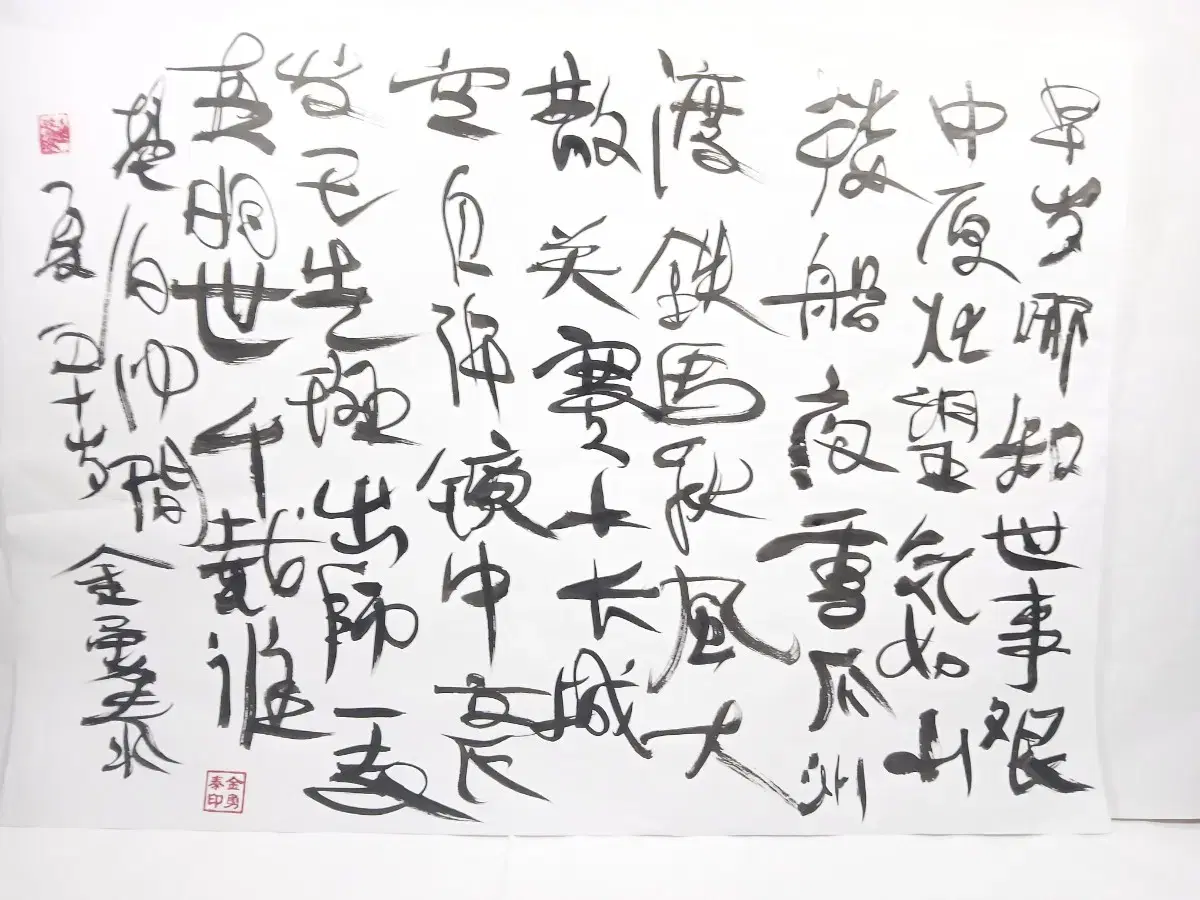 早岁哪知世事艰
中原北望气如山
楼船夜雪瓜州
渡鐵馬秋風大
散关塞上长城
空自許镜中衰
发已生斑出師一表
真明世千载誰
堪伯仲間金勇泰
夏五十岁
金勇泰印